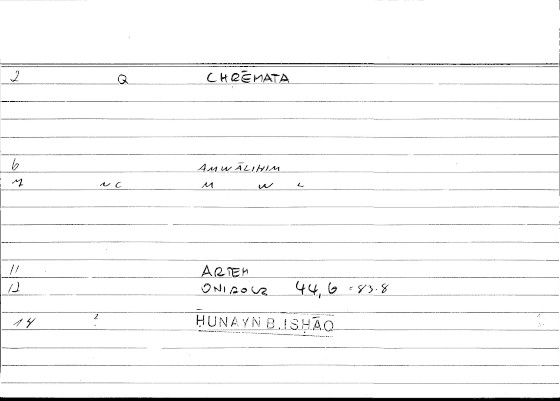 2 Q CHRĒMATA
6 AMWĀLIHIM
7 NC M W L
11 ARTEM
12 ONIROCR 44,6 = 83.8
14 ? ḤUNAYN B. ISḤĀQ